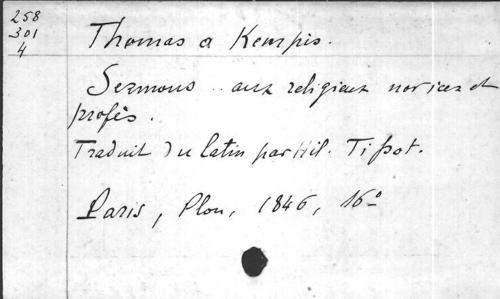 258
301
4
Thomas a Kempis.
Sermons .. aux religieux novices et
profès.
Traduit du latin par Hil. Tissot.
Paris, Plon, 1846, 16º